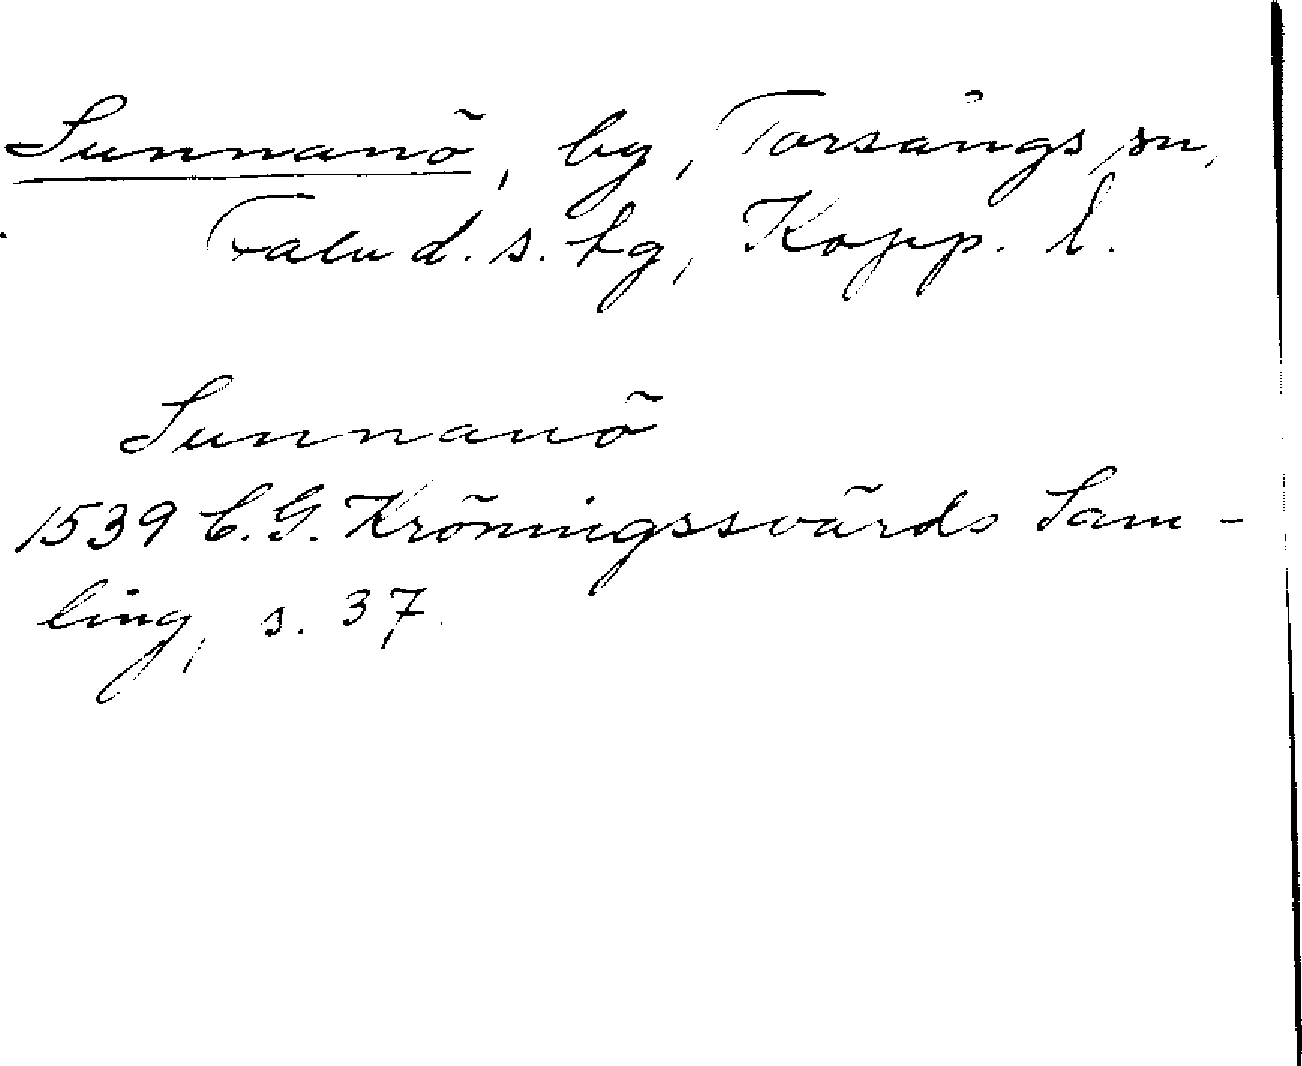 Sunnanö, by, Torsångs sn,
Falu d. s. tg, Kopp. l.
Sunnanö
1539 C. G. Kröningssvärds Sam-
ling, s. 37.